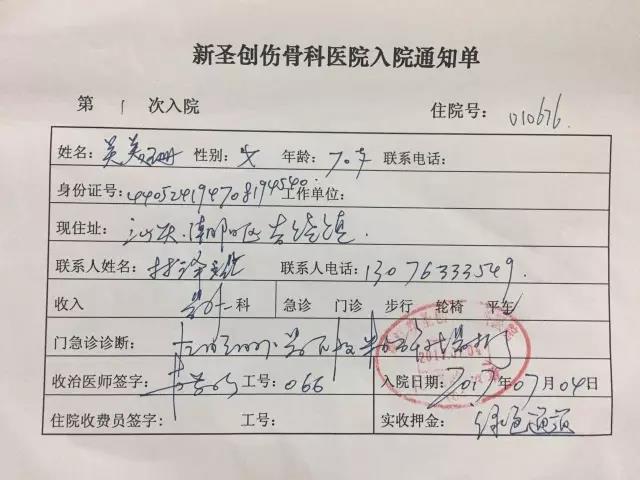 新圣创伤骨科医院入院通知单
第 1 次入院 住院号: 010676
姓名: 吴美珊 性别: 女 年龄: 70岁 联系电话:
身份证号: 440524194708194540 工作单位:
现住址: 汕头 潮阳区 谷饶镇
联系人姓名: 林 联系人电话: 13076333549
收入 骨外一科 急诊 门诊 步行 轮椅 平车
门急诊诊断:
收治医师签字: 工号: 066 入院日期: 2017年07月04日
住院收费员签字: 工号: 实收押金: 绿色通道